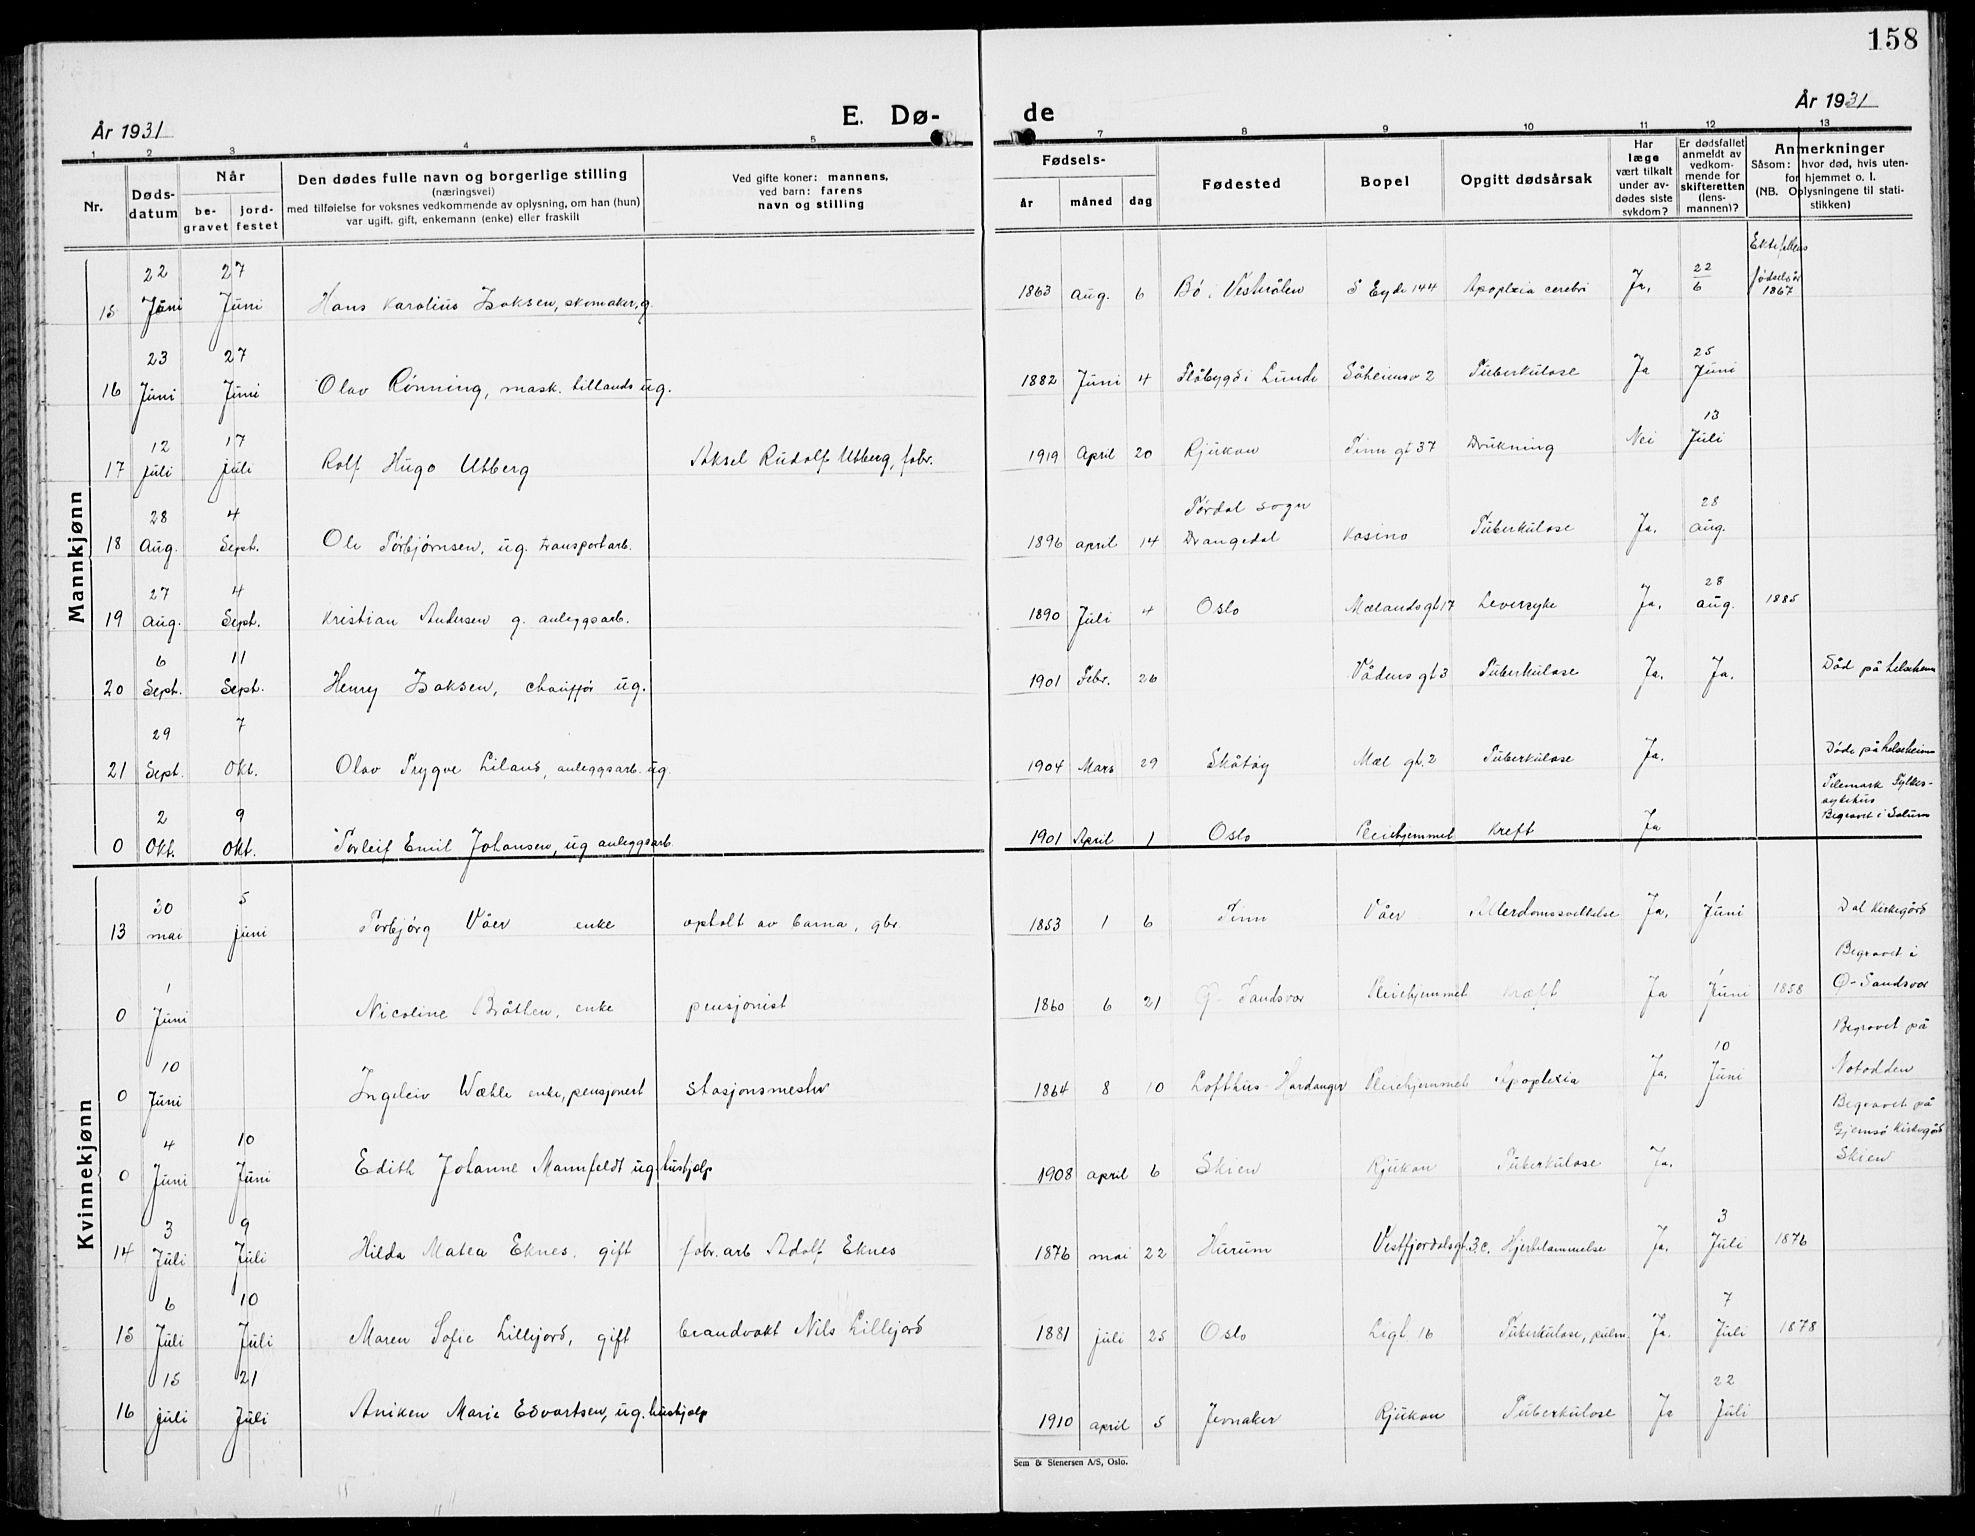 158
År 1931
E. Dø-
de
År 1931
1 2 3 4 5
7 8 9 10 11 12 13
Nr.
Døds-
datum
Når
be-
gravet
jord-
festet
Den dødes fulle navn og borgerlige stilling
(næringsvei)
med tilføielse for voksnes vedkommende av oplysning, om han (hun)
var ugift, gift, enkemann (enke) eller fraskilt
Ved gifte koner: mannens,
ved barn: farens
navn og stilling
Fødsels-
år måned dag
Fødested
Bopel
Opgitt dødsårsak
Har
læge
vært tilkalt
under av-
dødes siste
sykdom?
Er dødsfallet
anmeldt av
vedkom-
mende for
skifteretten
(lens-
mannen)?
Anmerkninger
Såsom: hvor død, hvis uten-
for hjemmet o. l.
(NB. Oplysningene til stati-
stikken)
Mannkjønn
15 22 Juni 27 Juni Hans Karolius Isaksen, skomaker, g. 1863 Aug. 6 Bø i Vesterålen S Eyde 144 Apoplexia cerebri Ja, 22/6 Ektefelles fødselsår 1867
16 23 Juni 27 Juni Olav Rønning, mask. tillands ug. 1882 Juni 4 Flåbygd i Lunde Såheimsv 2 Tuberkulose Ja 25 Juni
17 12 juli 17 juli Rolf Hugo Utberg Aksel Rudolf Utberg, fabr. 1919 April 20 Rjukan Tinn gt 37 Drukning Nei 13 Juli
18 28 Aug. 4 Sept. Ole Torbjørnsen, ug. transportarb. 1896 april 14 Tørdal sogn Drangedal Kasino Tuberkulose Ja. 28 aug.
19 27 Aug. 4 Sept. Kristian Andersen g. anleggsarb. 1890 Juli 4 Oslo Mælandsgt 17 Leversyke Ja. 28 aug. 1885
20 6 Sept. 11 Sept. Henry Isaksen, chauffør ug. 1901 Febr. 26 Vådens gt 3 Tuberkulose Ja. Ja. Död på helseheim
21 29 Sept. 7 Okt. Olav Trygve Liland, anleggsarb. ug. 1904 Mars 29 Skåtøy Mæl gt. 2 Tuberkulose Ja. Döde på helseheim
0 2 Okt. 9 Okt. Torleif Emil Johansen, ug anleggsarb. 1901 April 1 Oslo Pleiehjemmet Kreft Ja Telemark Fylkes- sykehus Begravet i Solum
Kvinnekjønn
13 30 mai 5 juni Torbjørg Våer enke opholt av barna, gbr 1853 1 6 Tinn Våer Alderdomssvekkelse Ja, 1 Juni Dal Kirkegård
0 1 Juni Nicoline Bråthen, enke pensjonist 1860 6 21 Ø- Sandsvær Pleiehjemmet Kræft Ja 1 Juni 1858 Begravet i Ø- Sandsvær
0 10 Juni Ingeleiv Wæhle enke, pensjonert stasjonsmester 1864 8 10 Lofthus - Hardanger Pleiehjemmet Apoplexia Ja. 10 Juni Begravet på Notodden
0 4 Juni 10 Juni Edith Johanne Mannfeldt ug. hushjelp 1908 april 6 Skien Rjukan Tuberkulose Ja. Begravet på Gjemsø Kirkegård Skien
14 3 Juli 9 Juli Hilda Matea Eknes, gift fabr. arb Adolf Eknes 1876 mai 22 Hurum Vestfjordalsgt. 3.c. Hjertelammelse Ja. 3 Juli 1876
15 6 Juli 10 Juli Maren Sofie Lillejord, gift brandvakt Nils Lillejord 1881 juli 25 Oslo Ligt. 16 Tuberkulose, pulm. Ja. 7 Juli 1878
16 15 juli 21 Juli Aniken Marie Edvartsen, ug. hushjelp 1910 april 5 Jevnaker Rjukan Tuberkulose Ja 22 Juli
Sem & Stenersen A/S, Oslo.